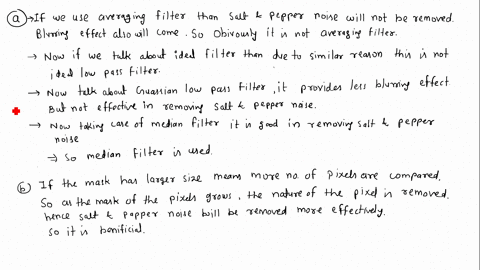 (a) → If we use averaging filter than salt & pepper noise will not be removed.
Blurring effect also will come. So Obivously it is not averaging filter.
→ Now if we talk about ideal filter than due to similar reason this is not
ideal low pass filter.
→ Now talk about Guassian low pass filter, it provides less blurring effect
But not effective in removing salt & pepper noise.
→ Now taking case of median filter it is good in removing salt & pepper
noise
⇒ So median filter is used.
(b) If the mask has larger size means more no. of pixels are compared.
So as the mask of the pixels grows, the nature of the pixel is removed.
hence salt & papper noise will be removed more effectively.
so it is benificial.